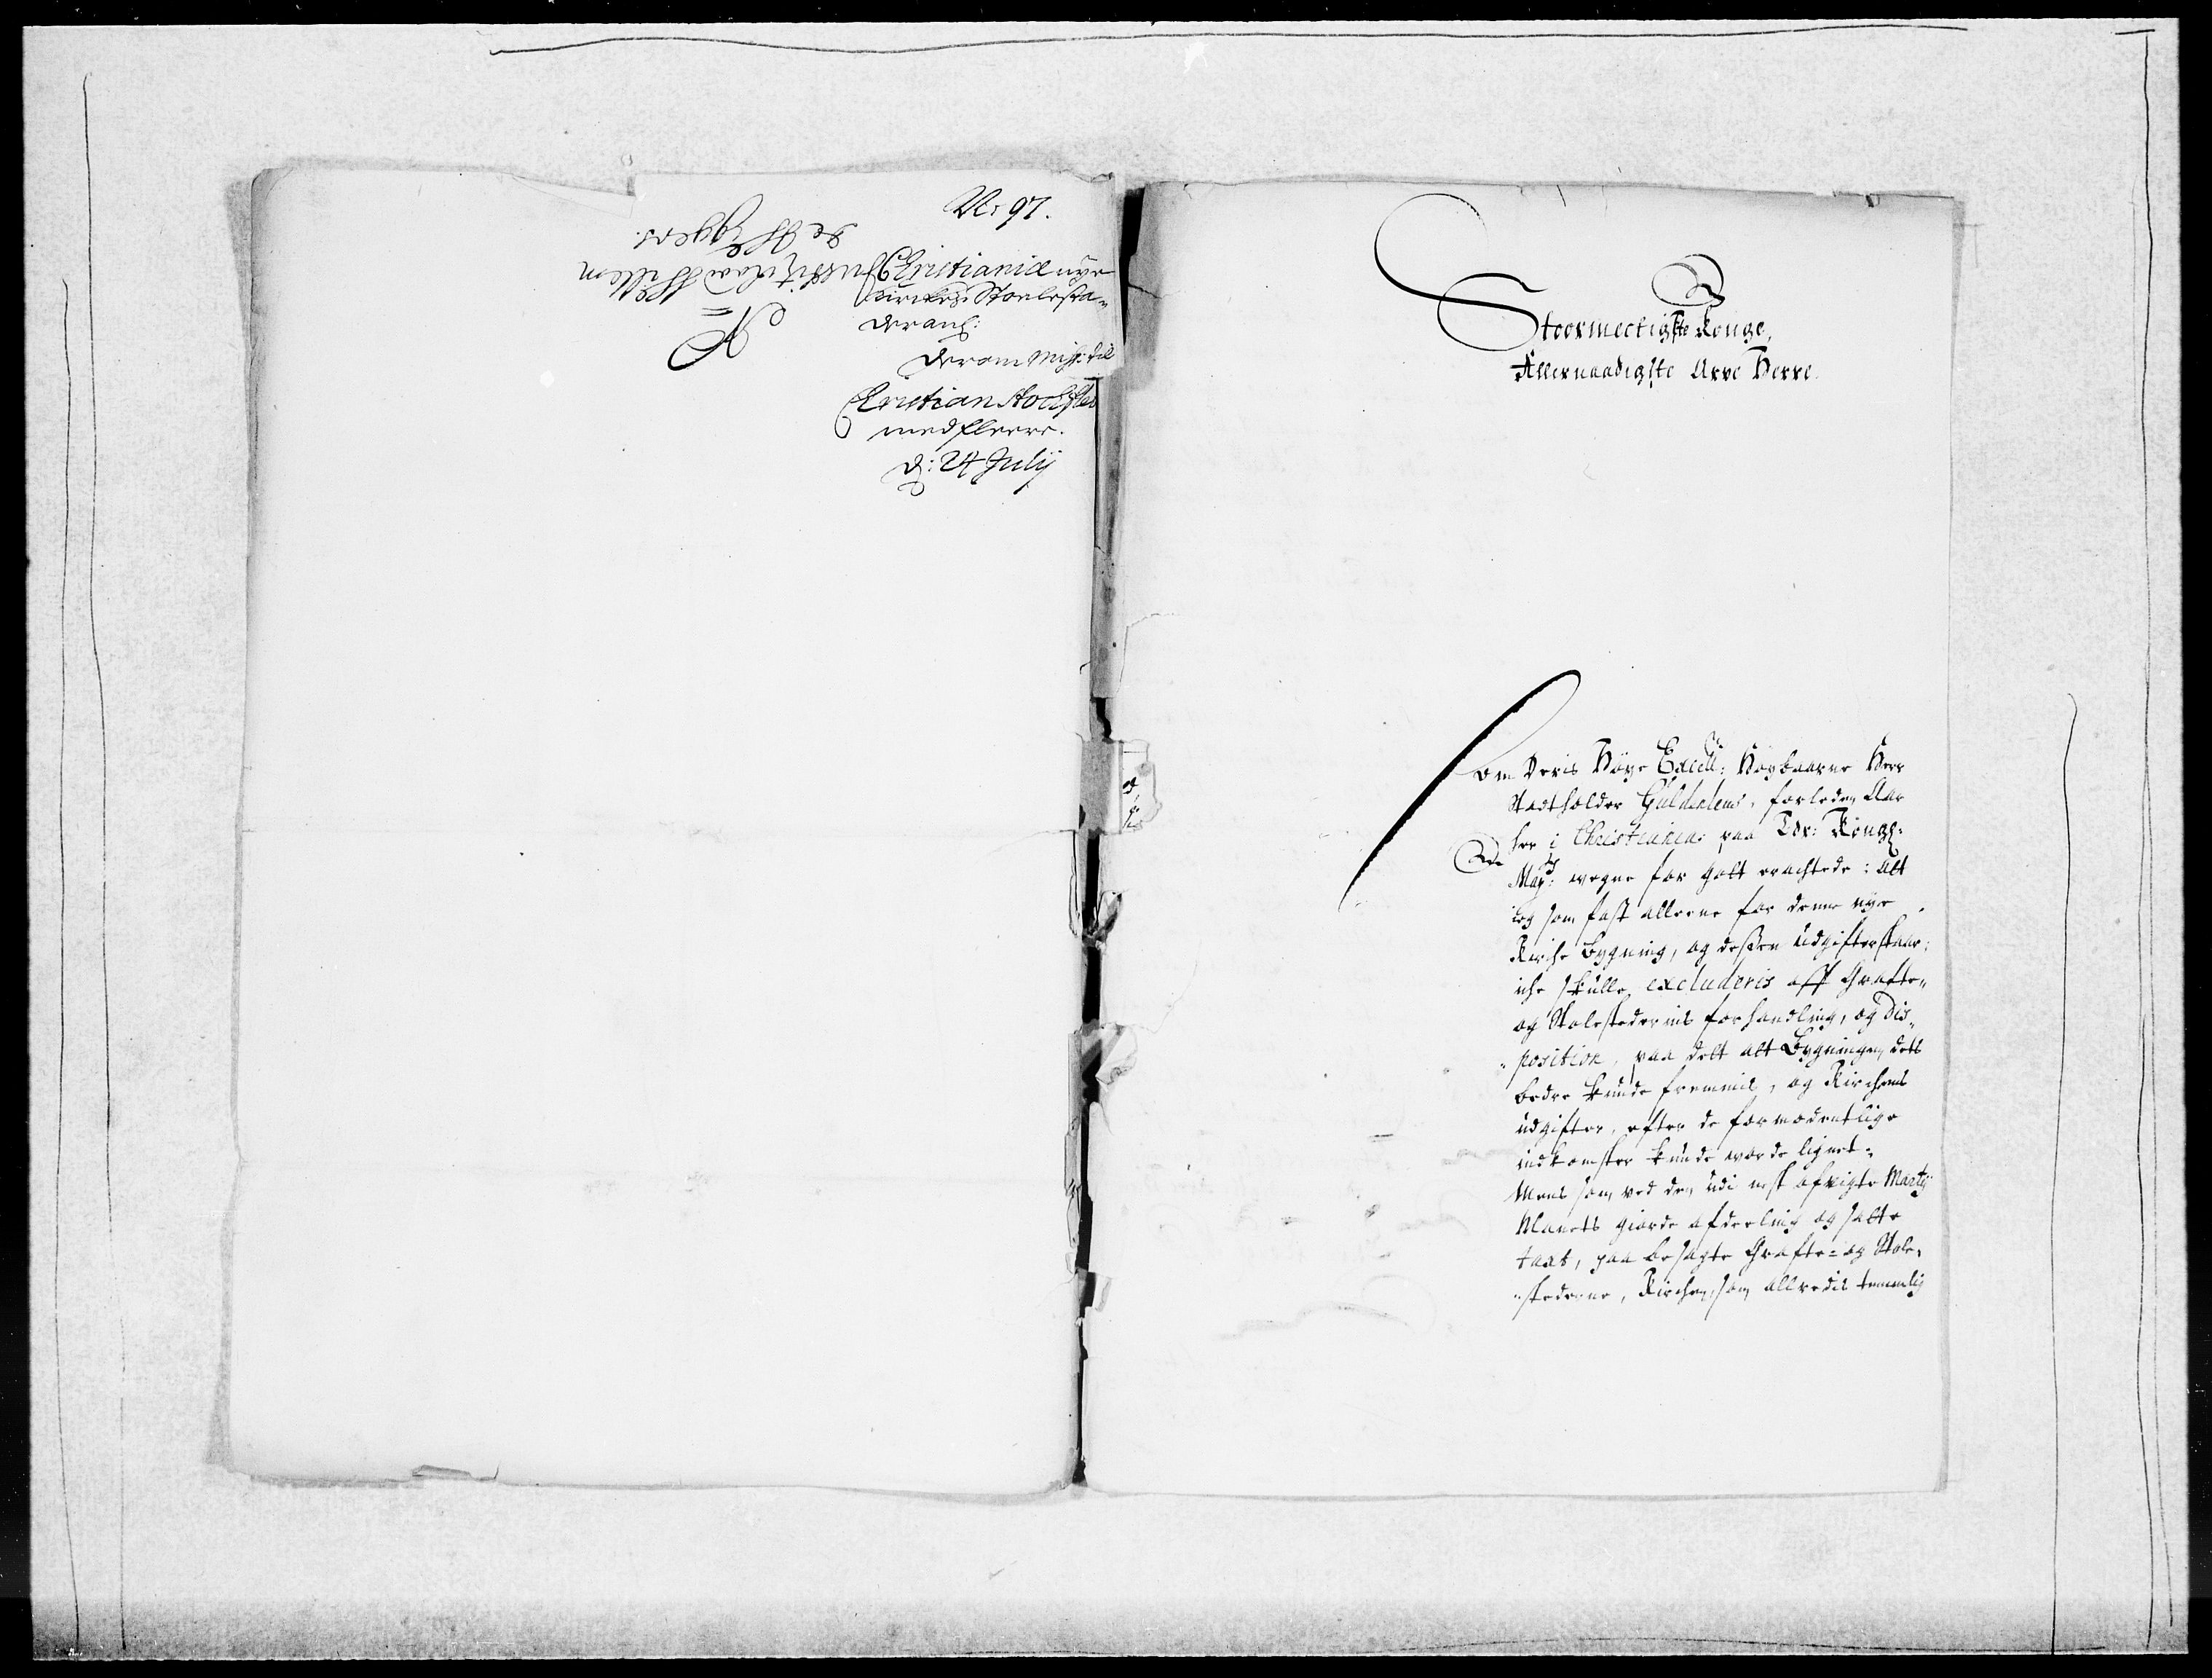 No: 97.
Christianiæ nye
Kirckes Stoelesta-
der ang:
derom Miss: til
Christian Stochflet
med fleere.
d: 24 July
Justitz Raad Willem
de Hyggers.
Stoormectigste Konge,
Allernaadigste Arve Herre.
Som Deris Höye Excell: Höybaarne Herr
Stadtholder Güldenlew, forleden Aar
her i Christiania paa Eders Kongl:
Mayts: vegne for gott eractede: Att
ieg som fast alleene for denne nye
Kirche bygning, og dessen udgifter staar:
iche skulle excluderis aff Grafte-
og Stolestedernis forhandling, og Dis-
position, paa dett att Bygningen dets
bedre kunde fremmis, og Kirchens
udgifter, efter de formodentlige
indkomster kunde worde lignet:
Mens som ved den udi nest afvigte Martij
Maanets giorde afdeeling og satte
taxt, paa besagte Grafte- og Stole-
stederne, Kirchen, som allerede temmelig